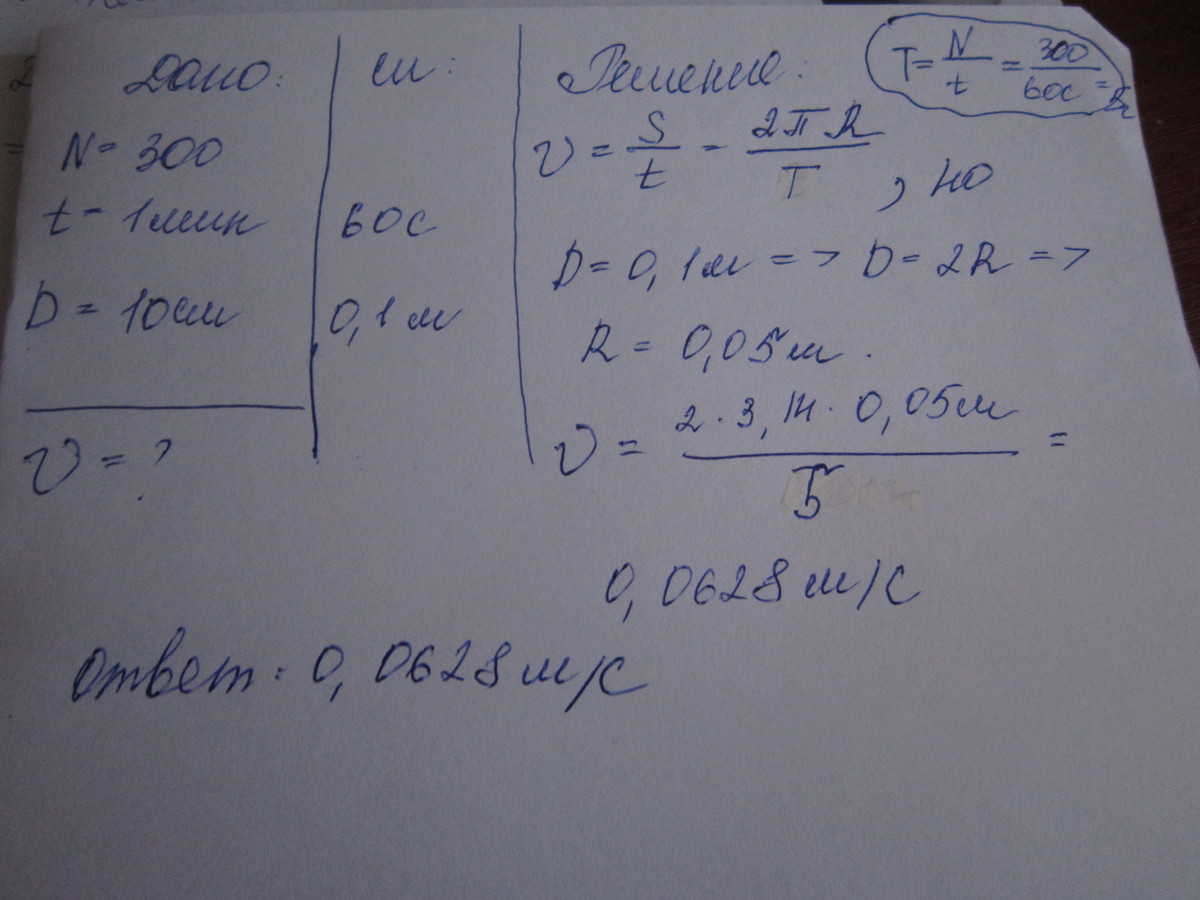 Дано:
N = 300
t = 1 мин
D = 10 см
v = ?
си:
60 с
0,1 м
Решение:
T = N/t = 300/60с =
v = S/t = 2πR/T, но
D = 0,1 м => D = 2R =>
R = 0,05 м.
v = 2 · 3,14 · 0,05 м / 5 =
0,0628 м/с
Ответ: 0,0628 м/с